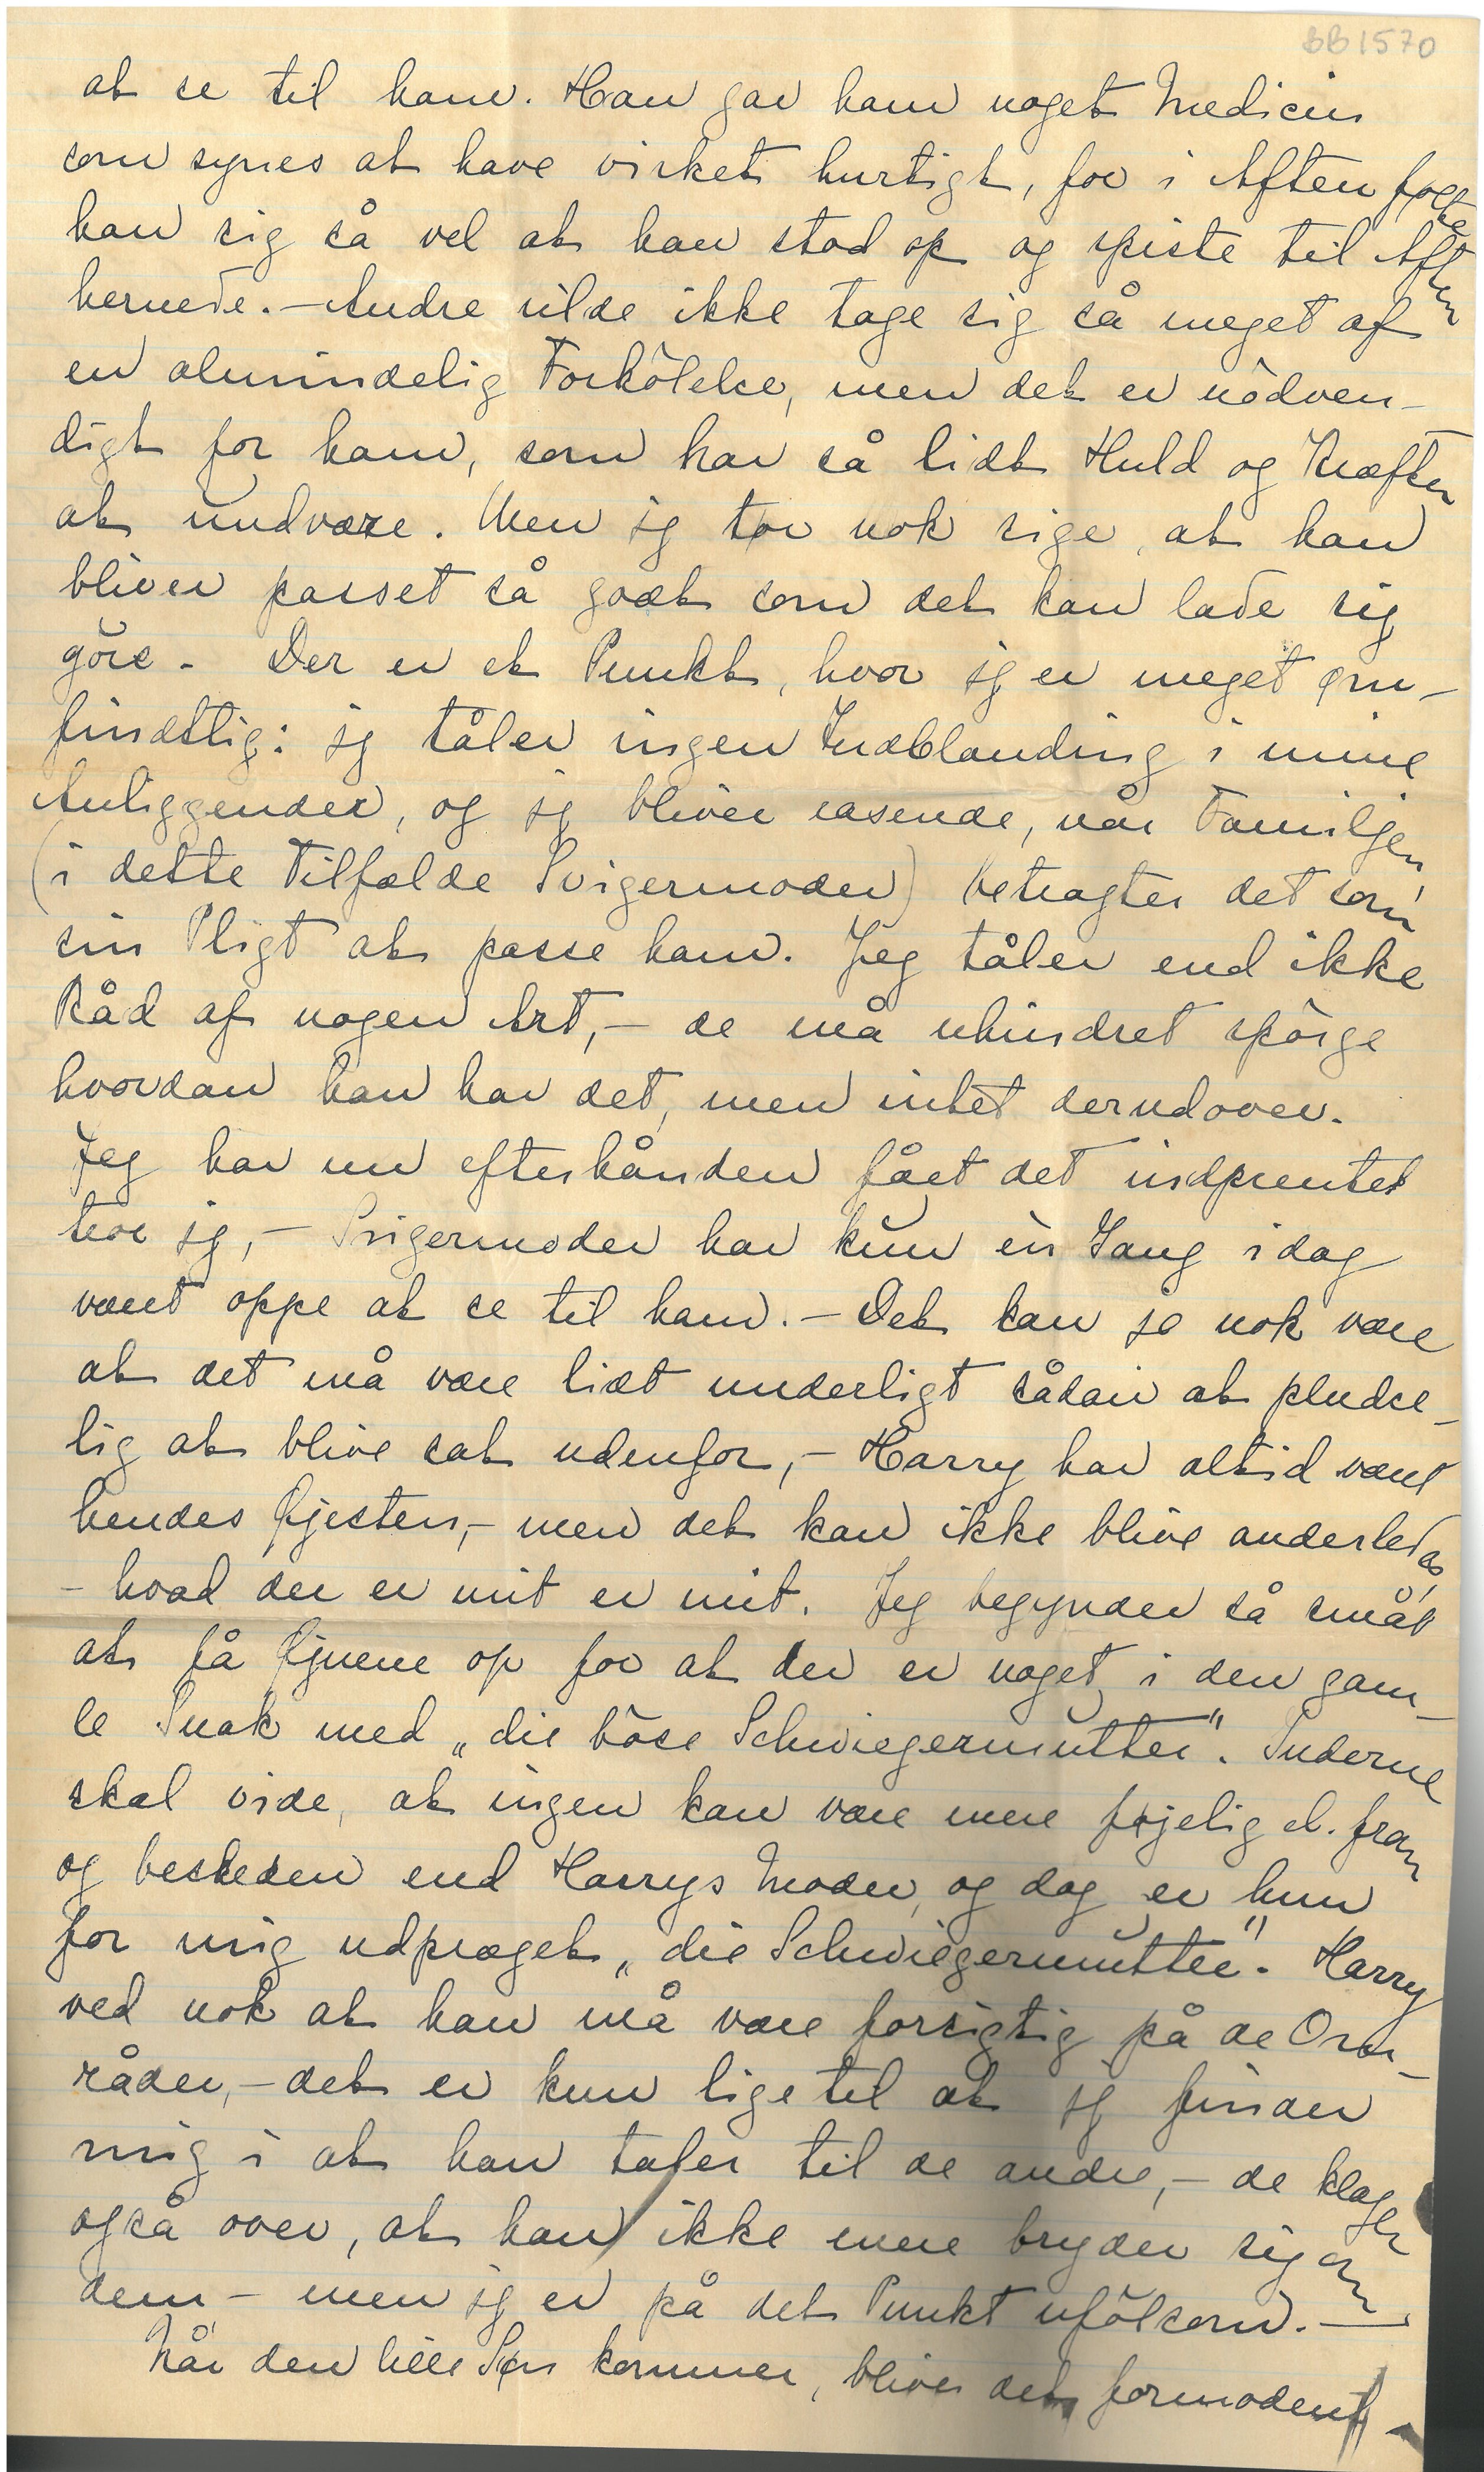 BB1570
at se til ham. Han gav ham noget Medicin
som synes at have virket hurtigt, for i Aften følte
han sig så vel at han stod op og spiste til Aften
hernede. – Andre vilde ikke tage sig så meget af
en almindelig Forkölelse, men det er nödven-
digt for ham, som har så lidt Huld og Kræfter
at undvære. Men jeg tør nok sige, at han
bliver passet så godt som det kan lade sig
göre. Der er et Punkt, hvor jeg er meget øm-
findtlig: jeg tåler ingen Indblanding i mine
Anliggender, og jeg bliver rasende, når Familjen
(i dette Tilfælde Svigermoder) betragter det som
sin Pligt at passe ham. Jeg tåler end ikke
Råd af nogen Art, – de må uhindret spörge
hvordan han har det, men intet derudover.
Jeg har nu efterhånden fået det indprentet
tror jeg, – Svigermoder har kun èn Gang idag
været oppe at se til ham. – Det kan jo nok være
at det må være lidt underligt sådan at pludse-
lig at blive sat udenfor, – Harry har altid været
hendes Øjesten, – men det kan ikke blive anderledes,
– hvad der er mit er mit. Jeg begynder så småt
at få Øjnene op for at der er noget i den gam-
le Snak med „die böse Schwiegermutter". Guderne
skal vide, at ingen kan være mere føjelig el. from
og beskeden end Harrys Moder, og dog er hun
for mig udpræget „die Schwiegermutter". Harry
ved nok at han må være forsigtig på de Om-
råder, – det er kun lige til at jeg finder
mig i at han taler til de andre, – de klager
også over, at han ikke mere bryder sig om
dem – men jeg er på det Punkt ufölsom. –
Når den lille Søn kommer, bliver det formodentl